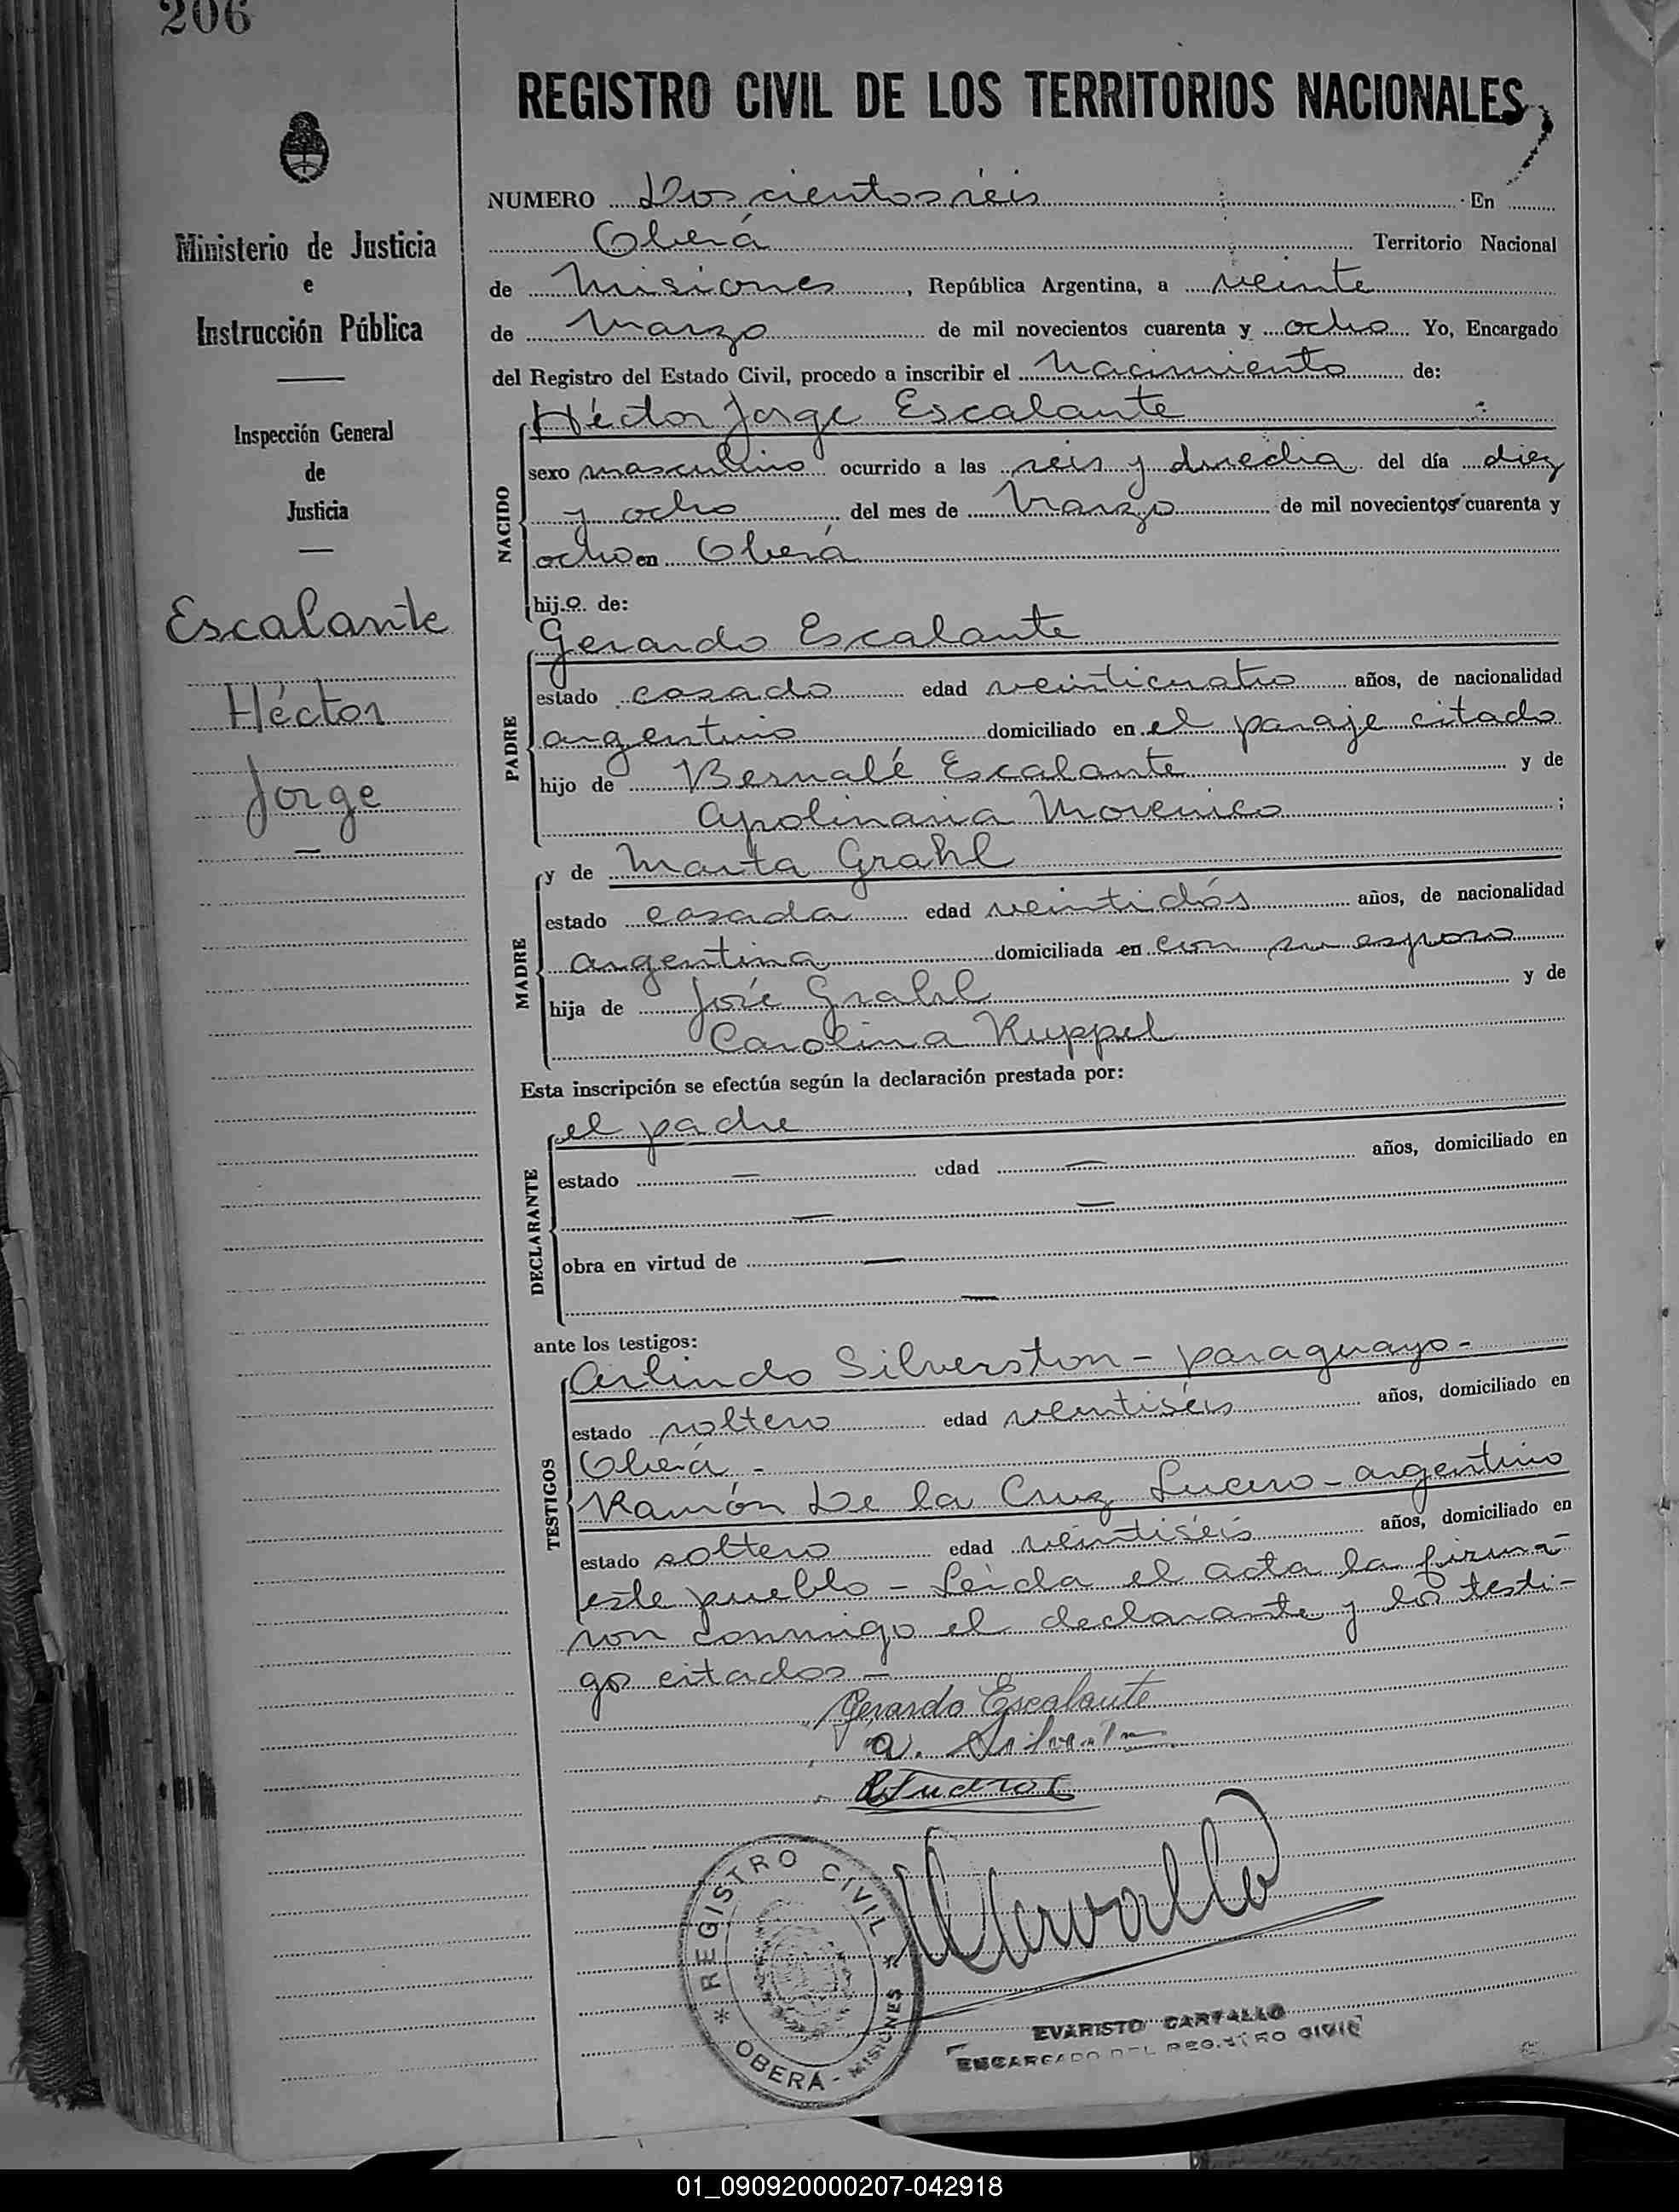 206
REGISTRO CIVIL DE LOS TERRITORIOS NACIONALES
Ministerio de Justicia
e
Instrucción Pública
Inspección General
de
Justicia
Escalante
Héctor
Jorge
NUMERO Doscientos seis En
Oberá Territorio Nacional
de Misiones, República Argentina, a veinte
de Marzo de mil novecientos cuarenta y ocho Yo, Encargado
del Registro del Estado Civil, procedo a inscribir el Nacimiento de:
NACIDO
Héctor Jorge Escalante
sexo masculino ocurrido a las seis y media del día diez
y ocho del mes de Marzo de mil novecientos cuarenta y
ocho en Oberá
hijo de:
PADRE
Gerardo Escalante
estado casado edad veinticuatro años, de nacionalidad
argentino domiciliado en el paraje citado
hijo de Bernabé Escalante y de
Apolinaria ;
MADRE
y de Marta Grahl
estado casada edad veintidós años, de nacionalidad
argentina domiciliada en con su esposo
hija de José Grahl y de
Carolina Ruppel
Esta inscripción se efectúa según la declaración prestada por:
DECLARANTE
el padre
estado — edad — años, domiciliado en
— —
obra en virtud de —
—
ante los testigos:
TESTIGOS
Arlindo Silverston - paraguayo -
estado soltero edad veintiséis años, domiciliado en
Oberá -
Ramón De la Cruz Lucero - argentino
estado soltero edad veintiséis años, domiciliado en
este pueblo - Leída el acta la firma-
ron conmigo el declarante y los testi-
gos citados -
Gerardo Escalante
A.
REGISTRO CIVIL
OBERÁ - MISIONES
EVARISTO CARVALLO
ENCARGADO DEL REGISTRO CIVIL
01_090920000207-042918